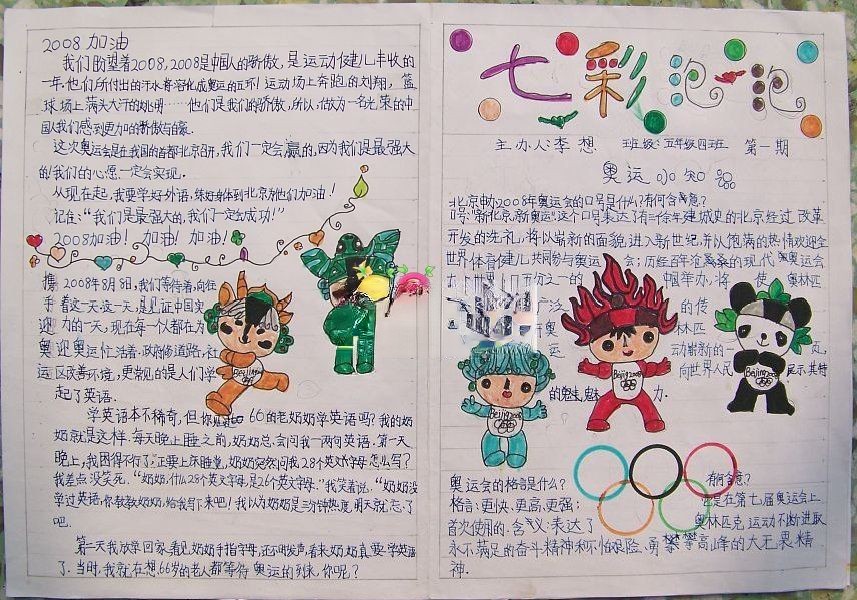 2008加油
我们盼望着2008,2008是中国人的骄傲,是运动健儿丰收的
一年,他们所付出的汗水将溶化成奥运的五环!运动场上奔跑的刘翔,篮
球场上满头大汗的姚明……他们是我们的骄傲,所以,做为一名光荣的中
国人我们感到更加的骄傲与自豪.
这次奥运会是在我国的首都北京召开,我们一定会赢的,因为我们是最强大
的!我们的心愿一定会实现.
从现在起,我要学好外语,练好身体到北京为他们加油!
记住:"我们是最强大的,我们一定会成功!"
2008加油!加油!加油!
携手迎奥运
2008年8月8日,我们等待着,向往
着这一天,这一天,是见证中国实
力的一天,现在每一个都在为
迎奥运忙活着.政府修道路,社
区改善环境,更常见的是人们学
起了英语.
学英语本不稀奇,但你 66的老奶奶学英语吗?我的奶
奶就是这样.每天晚上睡之前,奶奶总会问我一两句英语.第一天
晚上,我困得不行了,正要上床睡觉,奶奶突然问我28个英文字母怎么写?
我差点没笑死."奶奶,什么28个英文字母,是26个英文字母."我笑着说."奶奶没
学过英语,你教教奶奶,给我写下来吧!我以为奶奶是三分钟热度,明天就忘了
吧.
第二天我放学回家,看见奶奶手指字母,还不时发声,看来奶奶真要学英语
了.当时,我就在想,66岁的老人都等待奥运的到来,你呢?
Beijing2008
七彩
主办人:李想 班级:五年级四班 第一期
奥运小知识
北京申办2008年奥运会的口号是什么?有何含意?
口号:"新北京,新奥运"这个口号表达了有三千余年建城史的北京经过改革
开放的洗礼,将以崭新的面貌进入新世纪,并以饱满的热情欢迎全
世界体育健儿共同参与奥运会;历经百年沧桑的现代奥运会
百分之一的 中国举办,将 使 奥林匹
泛 的传
新奥 林匹
运 动崭新的一 页,
向世界人民 展示其特
的魅 力.
Beijing2008
Beijing2008
Beijing2008
奥运会的格言是什么? 有何含意?
格言:更快、更高、更强; 这是在第七届奥运会上
首次使用的.含义:表达了 奥林匹克运动不断进取
永不满足的奋斗精神和不怕艰险、勇攀高峰的大无畏精
神.